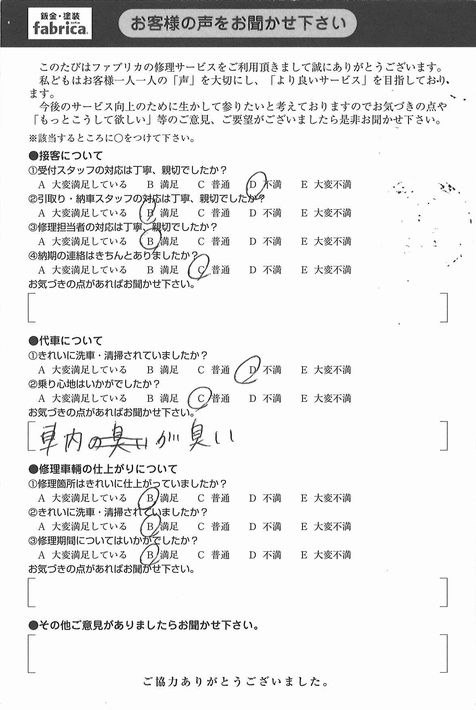 鈑金・塗装
fabrica.
お客様の声をお聞かせ下さい
このたびはファブリカの修理サービスをご利用頂きまして誠にありがとうございます。
私どもはお客様一人一人の「声」を大切にし、「より良いサービス」を目指しており、
ます。
今後のサービス向上のために生かして参りたいと考えておりますのでお気づきの点や
「もっとこうして欲しい」等のご意見、ご要望がございましたら是非お聞かせ下さい。
※該当するところに○をつけて下さい。
●接客について
①受付スタッフの対応は丁寧、親切でしたか？
A 大変満足している B 満足 C 普通 D 不満 E 大変不満
②引取り・納車スタッフの対応は丁寧、親切でしたか？
A 大変満足している B 満足 C 普通 D 不満 E 大変不満
③修理担当者の対応は丁寧、親切でしたか？
A 大変満足している B 満足 C 普通 D 不満 E 大変不満
④納期の連絡はきちんとありましたか？
A 大変満足している B 満足 C 普通 D 不満 E 大変不満
お気づきの点があればお聞かせ下さい。
●代車について
①きれいに洗車・清掃されていましたか？
A 大変満足している B 満足 C 普通 D 不満 E 大変不満
②乗り心地はいかがでしたか？
A 大変満足している B 満足 C 普通 D 不満 E 大変不満
お気づきの点があればお聞かせ下さい。
車内の臭いが臭い
●修理車輌の仕上がりについて
①修理箇所はきれいに仕上がっていましたか？
A 大変満足している B 満足 C 普通 D 不満 E 大変不満
②きれいに洗車・清掃されていましたか？
A 大変満足している B 満足 C 普通 D 不満 E 大変不満
③修理期間についてはいかがでしたか？
A 大変満足している B 満足 C 普通 D 不満 E 大変不満
お気づきの点があればお聞かせ下さい。
●その他ご意見がありましたらお聞かせ下さい。
ご協力ありがとうございました。